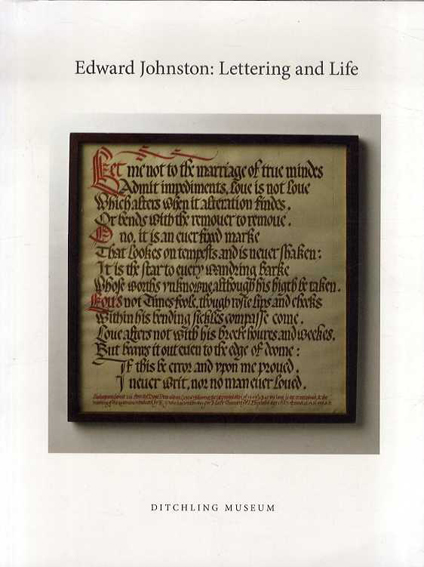 Edward Johnston: Lettering and Life
Let me not to the marriage of true mindes
Admit impediments, love is not love
Which alters when it alteration findes,
Or bends with the remover to remove.
O no, it is an ever fixed marke
That lookes on tempests and is never shaken:
It is the star to every wandring barke
Whose worths unknowne, although his higth be taken.
Lov's not Times foole, though rosie lips and cheeks
Within his bending sickles compasse come,
Love alters not with his breefe houres and weekes,
But beares it out even to the edge of doome:
If this be error and upon me proved,
I never writ, nor no man ever loved.
DITCHLING MUSEUM